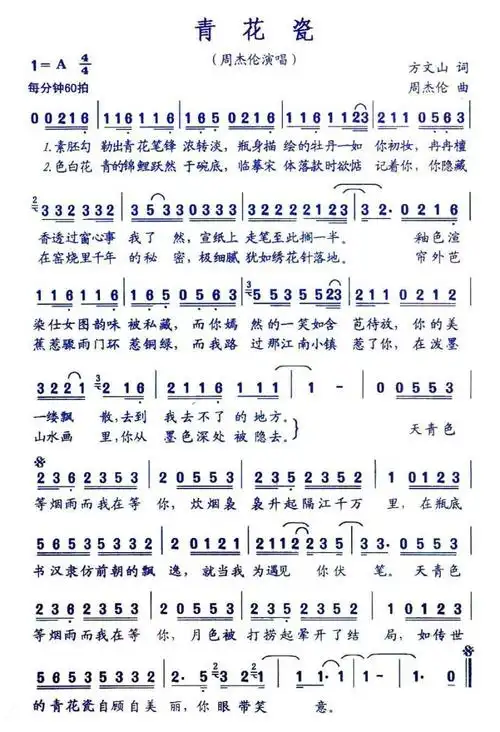 青花瓷
(周杰伦演唱)
1=A 4/4
每分钟60拍
方文山 词
周杰伦 曲
0 0216 | 116116 | 165 0216 | 1161123 | 211 0563 |
1.素胚勾 勒出青花笔锋 浓转淡, 瓶身描 绘的牡丹一如 你初妆, 冉冉檀
2.色白花 青的锦鲤跃然 于碗底, 临摹宋 体落款时欲惦 记着你, 你隐藏
332332 | 353 3033 | 32222123 | 32· 0216 |
香透过窗心事 我了 然, 宣纸上 走笔至此搁一半。 釉色渲
在窑烧里千年 的秘 密, 极细腻 犹如绣花针落地。 帘外芭
116116 | 165 0216 | 1153523 | 211 0212 |
染仕女图韵味 被私藏, 而你嫣 然的一笑如含 苞待放, 你的美
蕉惹骤雨门环 惹铜绿, 而我路 过那江南小镇 惹了你, 在泼墨
3221 216 | 112211 | 1 - | 0 0553 |
一缕飘 散,去到 我去不了 的地方。
山水画 里,你从 墨色深处 被隐去。
天青色
236 2353 | 2 0553 | 236 2352 | 1 0123 |
等烟雨而我在等 你, 炊烟袅 袅升起隔江千万 里, 在瓶底
56535335 | 3 0553 | 2323 2223 | 2112 0553 |
书汉隶仿前朝的飘 逸, 就当我 为遇见 你伏 笔。 天青色
236 2353 | 2 0553 | 236 2352 | 1 0123 |
等烟雨而我在等 你, 月色被 打捞起晕开了结 局, 如传世
56535335 | 3 0553 | 23221 | 11· | 1· 0 ‖
的青花瓷自顾自美 丽, 你眼 带笑 意。